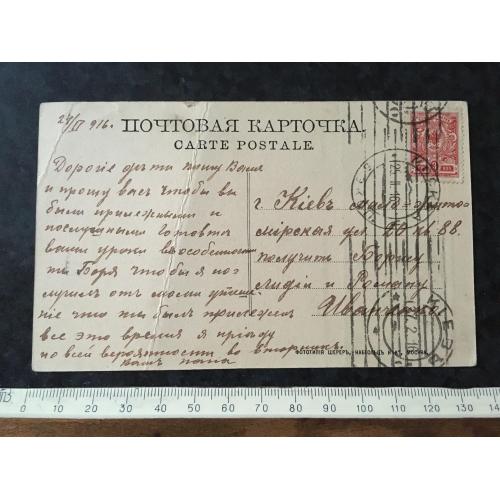 916.
ПОЧТОВАЯ КАРТОЧКА.
CARTE POSTALE.
Дорогіе дѣти пишу Вамъ
и прошу васъ чтобы вы
были прилежными и
послушными готовьте
ваши уроки въ особенности
ты Боря чтобы я по-
лучилъ отъ мамы
ніе что ты былъ прилеженъ
все это время я пріѣду
по всей вероятности во вторникъ.
вашъ папа
г. Кіевъ
мірская ул. кв 88.
получить Борису
Лидіи и Роману
Ивановымъ
ФОТОТИПІЯ ШЕРЕРЪ, НАБГОЛЬЦЪ И Кº, МОСКВА.
0 10 20 30 40 50 60 70 80 90 100 110 120 130 140